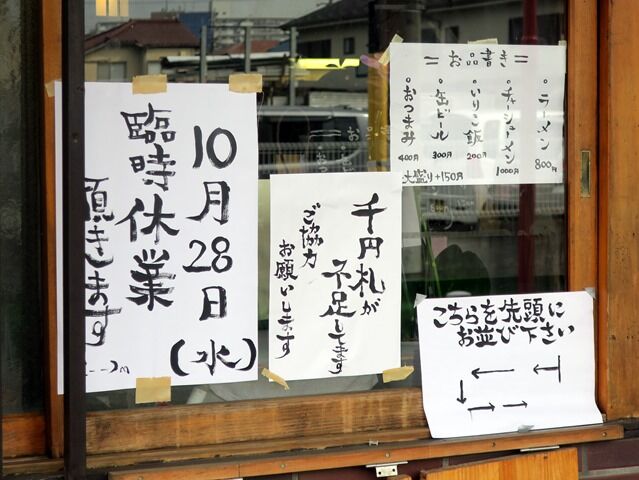 10月28日(水)
臨時休業
頂きます
m(--)m
千円札が
不足してます
ご協力
お願いします
=お品書き=
・ラーメン 800円
・チャーシューメン 1000円
・いりこ飯 200円
・缶ビール 300円
・おつまみ 400円
大盛り+150円
こちらを先頭に
お並び下さい